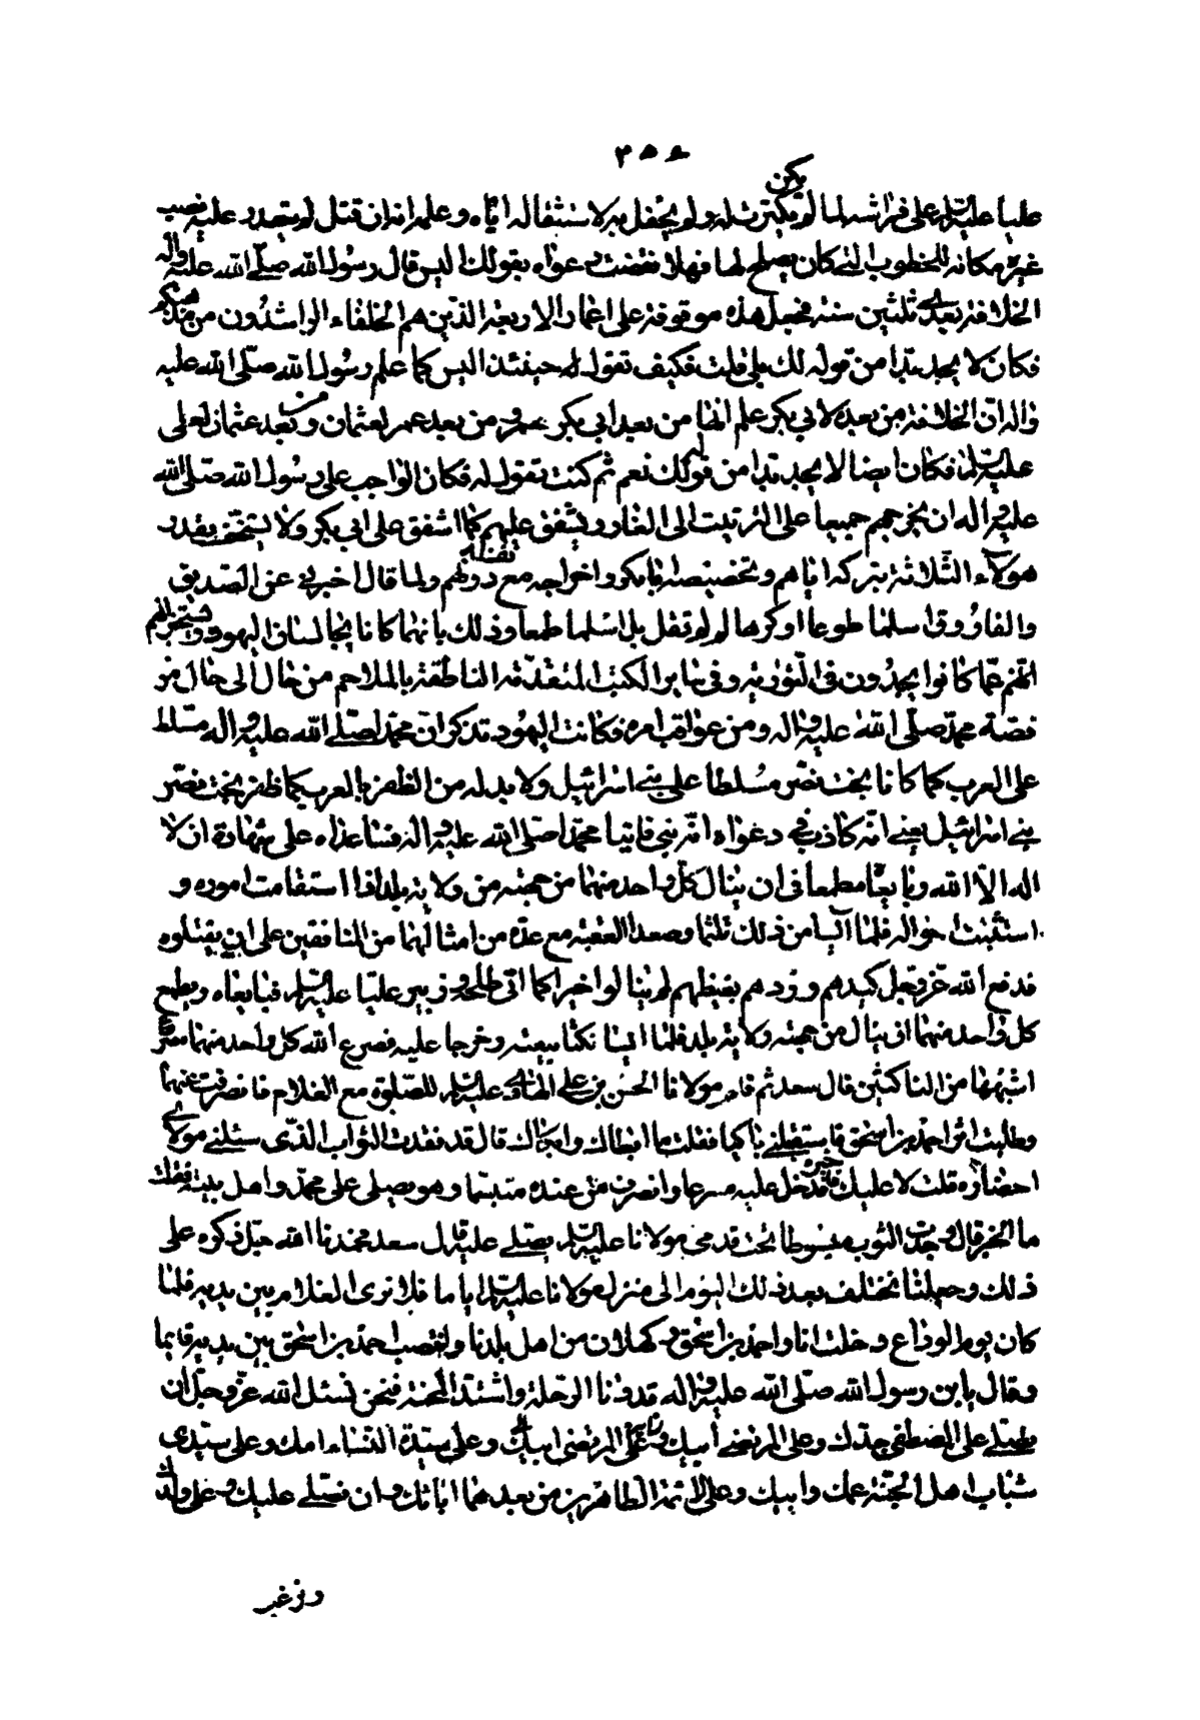 ٢٥٤
عليا عليه السلم على فراشه لما لم يكن يكترث له ولم يحفل به لاستثقاله اياه وعلمه انه ان قتل لم يتعذر عليه نصب
غيره مكانه للخطوب التى كان يصلح لها فهلا نقضت دعواه بقولك اليس قال رسول الله صلى الله عليه واله
الخلافة بعدى ثلثين سنة فجعل هذه موقوفة على اعمار الاربعة الذين هم الخلفاء الراشدون من مذهبكم
فكان لا يجد بدا من قوله لك بلى قلت فكيف تقول له حينئذ اليس كما علم رسول الله صلى الله عليه
واله ان الخلافة من بعده لابى بكر علم انها من بعد ابى بكر عمر ومن بعد عمر لعثمان ومن بعد عثمان لعلى
عليه السلم فكان ايضا لا يجد بدا من قوله لك نعم ثم كنت تقول له فكان الواجب على رسول الله صلى الله
عليه واله ان يخرجهم جميعا على الترتيب الى الغار ويشفق عليهم كما اشفق على ابى بكر ولا يستخف بقدر
هولاء الثلاثة بتركه اياهم وتخصيصه ابا بكر واخراجه مع نفسه دونهم ولما قال اخبرنى عن الصديق
والفاروق اسلما طوعا او كرها لم لم تقل بل اسلما طمعا وذلك بانهما كانا يجالسان اليهود ويستخبرانهم
عما كانوا يجدون فى التورية وفى ساير الكتب المتقدمة الناطقة بالملاحم من حال الى حال من
قصة محمد صلى الله عليه واله ومن عواقب امره فكانت اليهود تذكر ان محمدا صلى الله عليه واله مسلط
على العرب كما كان بخت نصر مسلطا على بنى اسرائيل ولا بد له من الظفر بالعرب كما ظفر بخت نصر
بنى اسرائيل يعنى انه كاذب فى دعواه انه نبى فاتيا محمدا صلى الله عليه واله فساعداه على شهادة ان لا
اله الا الله وبايعاه طمعا فى ان ينال كل واحد منهما من جهته من ولاية بلد اذا استقامت اموره و
استتبت احواله فلما آيسا من ذلك تلثما وصعدا العقبة مع عدة من امثالهما من المنافقين على ان يقتلوه
فدفع الله عز وجل كيدهم وردهم بغيظهم لم ينالوا خيرا كما اتى طلحة وزبير عليا عليه السلم فبايعاه وطمع
كل واحد منهما ان ينال من جهته ولاية بلد فلما ايسا نكثا بيعته وخرجا عليه فصرع الله كل واحد منهما مصرع
اشبههما من الناكثين قال سعد ثم قام مولانا الحسن بن على الهادى عليه السلم للصلوة مع الغلام فانصرفت عنهما
وطلبت اثر احمد بن اسحق فاستقبلنى باكيا فقلت ما ابطاك وابكاك قال قد فقدت الثواب الذى سئلنى مولاى
احضاره قلت لا عليك فاخبره فدخل عليه مسرعا وانصرف من عنده متبسما وهو يصلى على محمد واهل بيته فقلت
ما الخبر قال وجدت الثوب مبسوطا تحت قدمى مولانا عليه السلم يصلى عليه قال سعد فحمدنا الله جل ذكره على
ذلك وجعلنا نختلف بعد ذلك اليوم الى منزل مولانا عليه السلم اياما فلا نرى الغلام بين يديه فلما
كان يوم الوداع دخلت انا واحمد بن اسحق وكهلان من اهل بلدنا وانتصب احمد بن اسحق بين يديه قايما
وقال يابن رسول الله صلى الله عليه واله قد دنا الرحلة واشتد المحنة فنحن نسئل الله عز وجل ان
يصلى على المصطفى جدك وعلى المرتضى ابيك وعلى سيدة النساء امك وعلى سيدى
شباب اهل الجنة عمك وابيك وعلى الائمة الطاهرين من بعدهما ابائك وان يصلى عليك وعلى ولدك
ونرغب